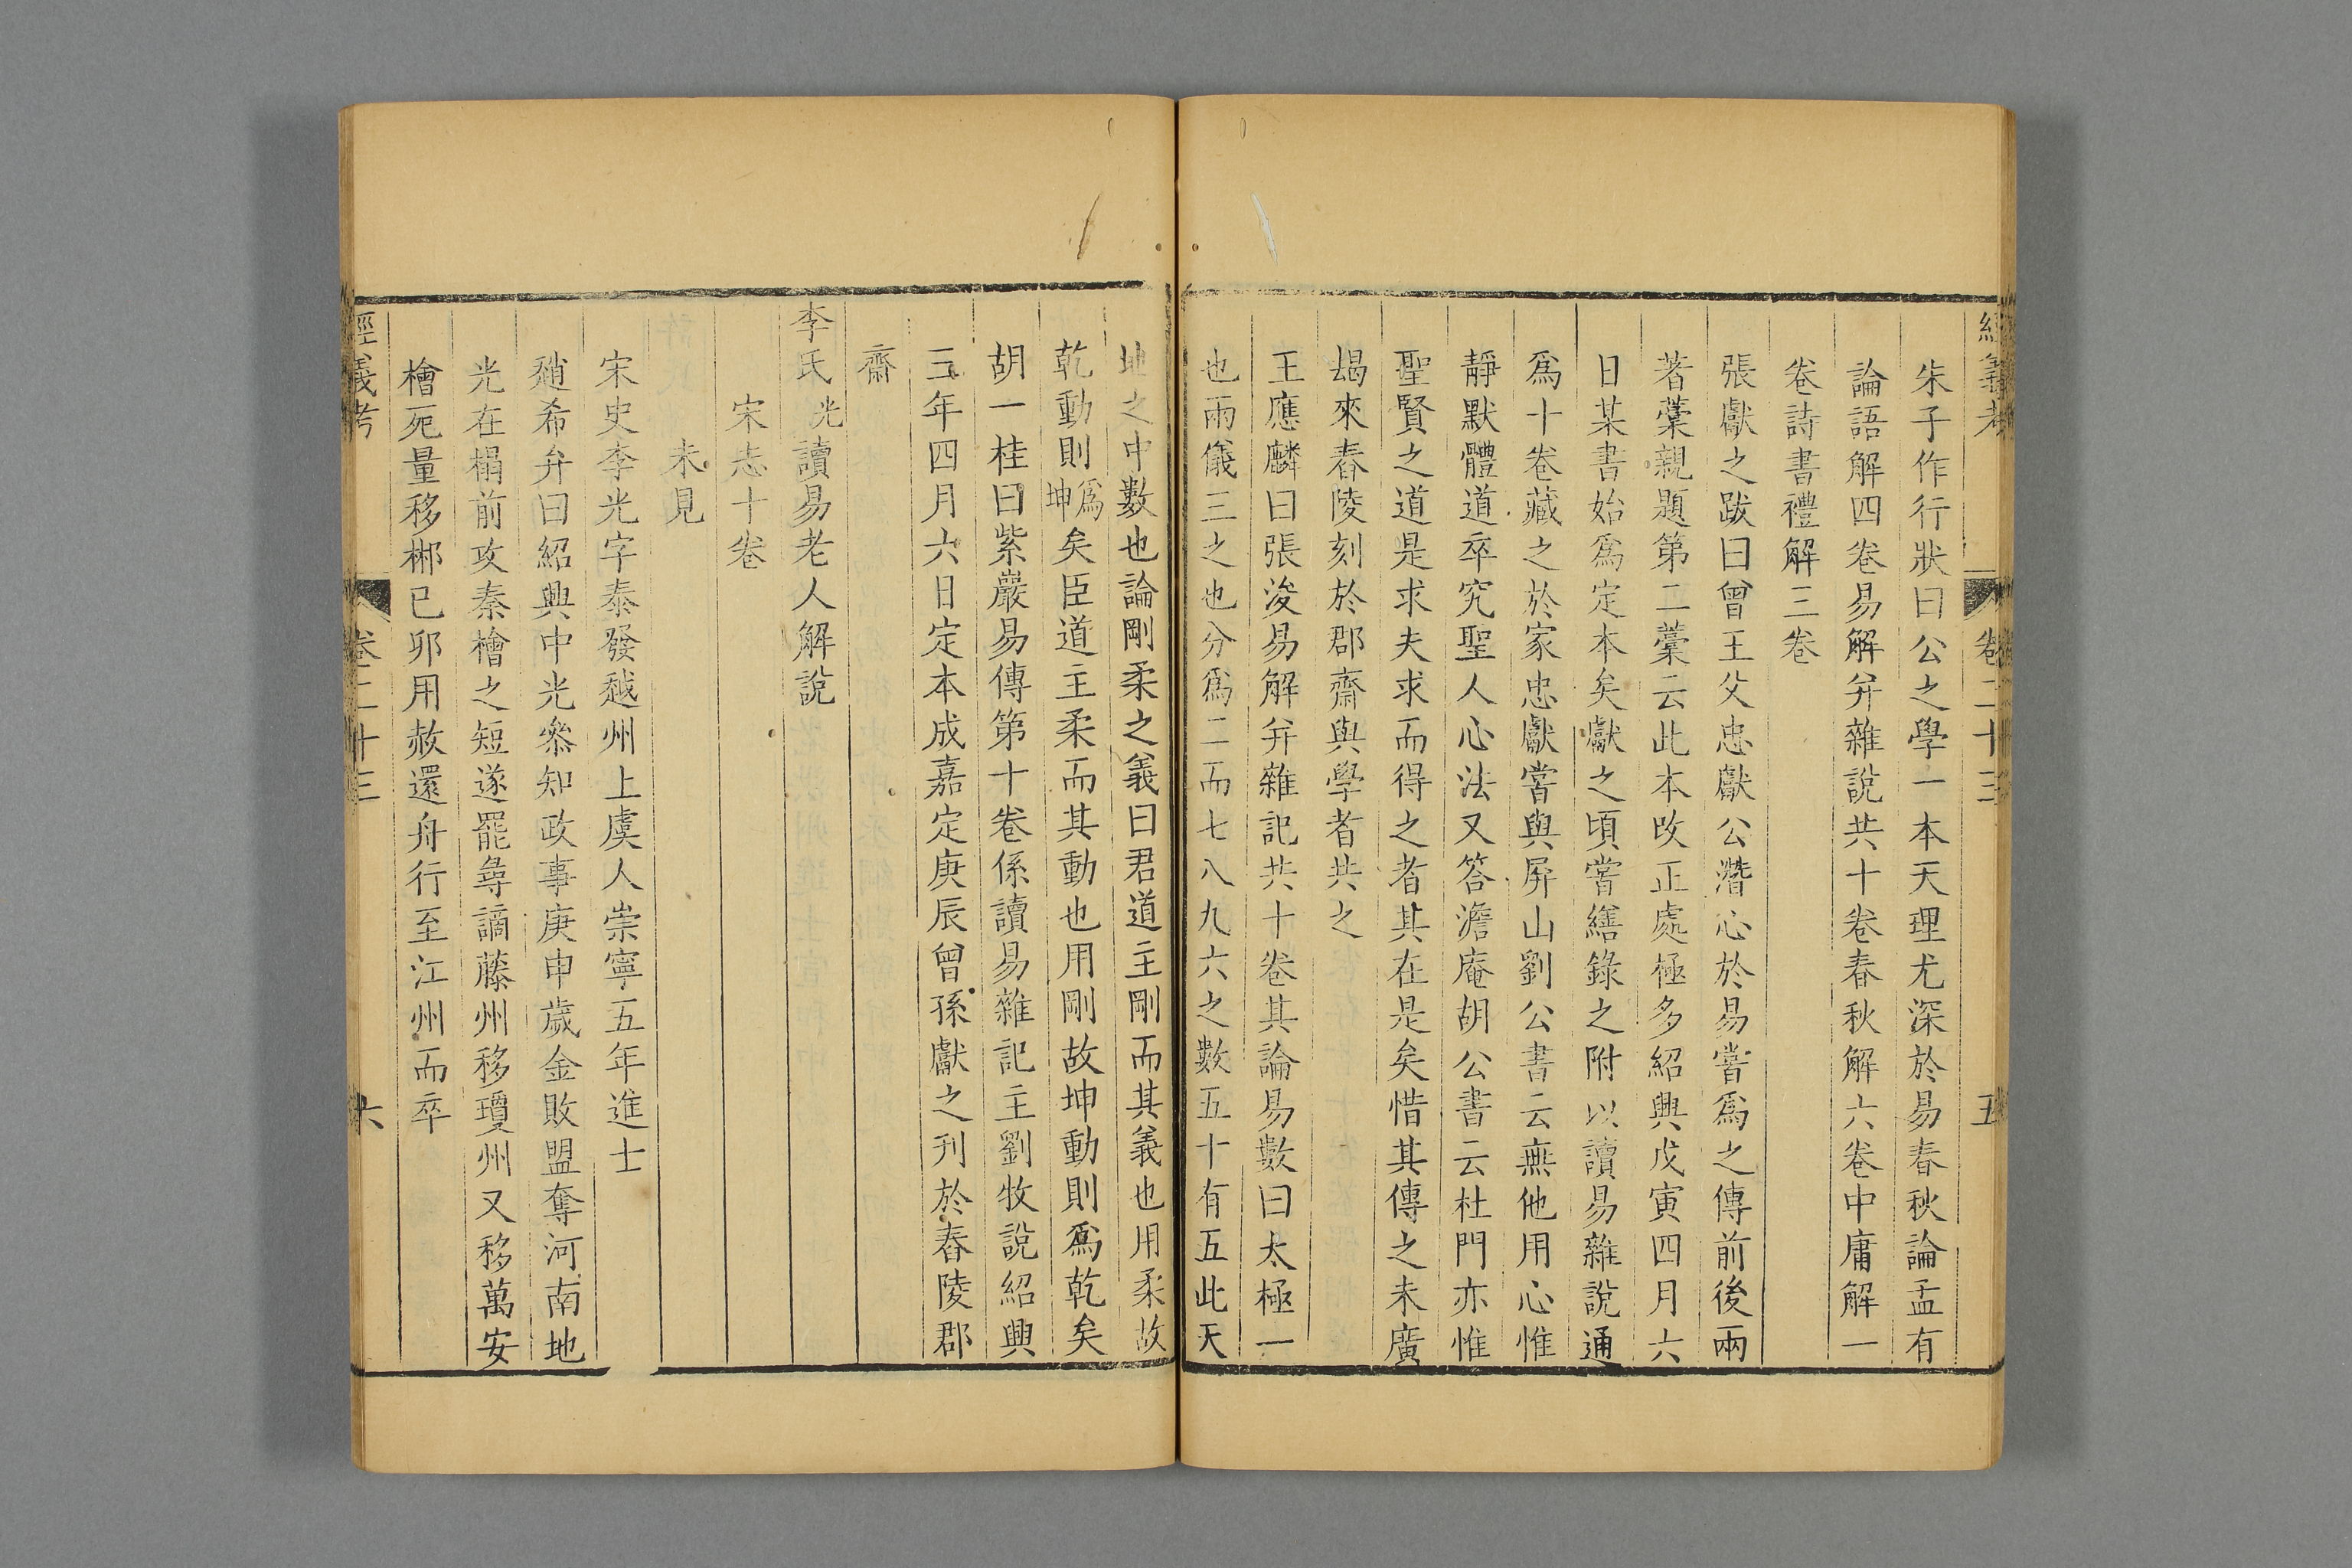 經義考　卷二十三　五
朱子作行狀曰公之學一本天理尤深於易春秋論孟有
論語解四卷易解并雜說共十卷春秋解六卷中庸解一
卷詩書禮解三卷
張獻之跋曰曾王父忠獻公潛心於易嘗爲之傳前後兩
著藁親題第二藁云此本改正處極多紹興戊寅四月六
日某書始爲定本矣獻之頃嘗繕錄之附以讀易雜說通
爲十卷藏之於家忠獻嘗與屏山劉公書云無他用心惟
靜默體道卒究聖人心法又答澹庵胡公書云杜門亦惟
聖賢之道是求夫求而得之者其在是矣惜其傳之未廣
朅來舂陵刻於郡齋與學者共之
王應麟曰張浚易解并雜記共十卷其論易數曰太極一
也兩儀三之也分爲二而七八九六之數五十有五此天
地之中數也論剛柔之義曰君道主剛而其義也用柔故
乾動則爲坤矣臣道主柔而其動也用剛故坤動則爲乾矣
胡一桂曰紫巖易傳第十卷係讀易雜記主劉牧說紹興
三年四月六日定本成嘉定庚辰曾孫獻之刊於舂陵郡
齋
李氏光讀易老人解說
宋志十卷
未見
宋史李光字泰發越州上虞人崇寧五年進士
趙希弁曰紹興中光參知政事庚申歲金敗盟奪河南地
光在榻前攻秦檜之短遂罷尋謫藤州移瓊州又移萬安
檜死量移郴已卯用赦還舟行至江州而卒
經義考　卷二十三　六